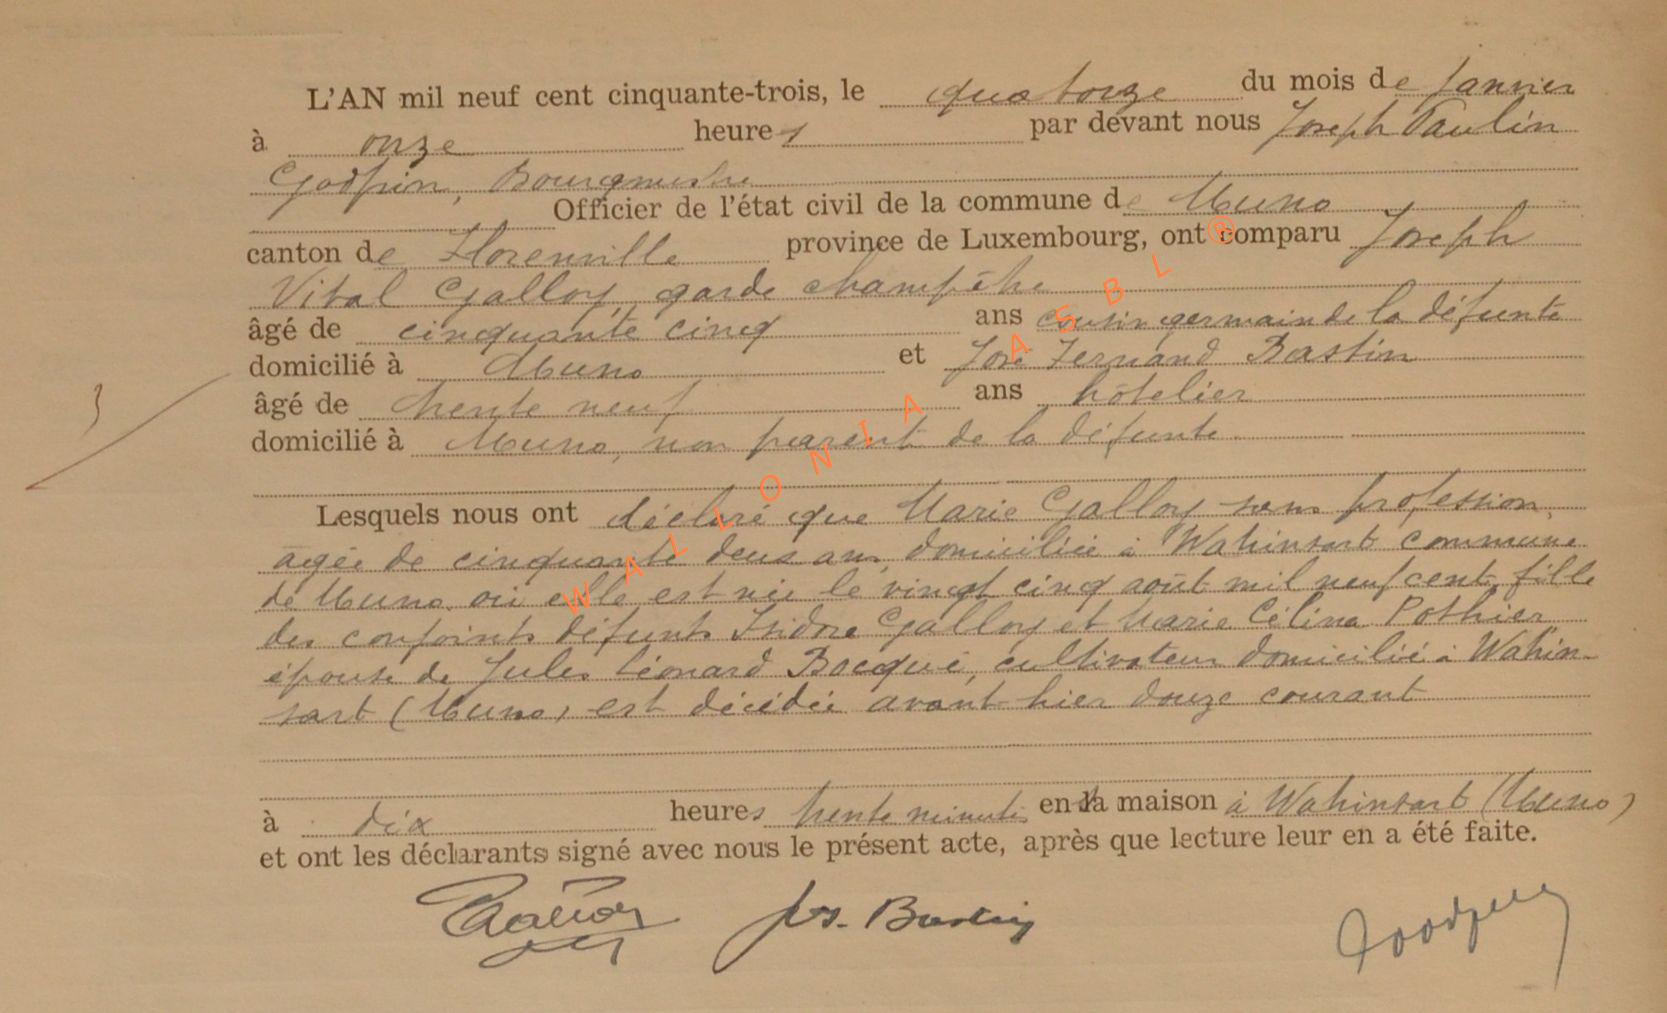 L'AN mil neuf cent cinquante-trois, le quatorze du mois de Janvier
à onze heures par devant nous Joseph Paulin
Godfrin, Bourgmestre
Officier de l'état civil de la commune de Muno
canton de Florenville province de Luxembourg, ont comparu Joseph
Vital Galloy, garde champêtre
âgé de cinquante cinq ans cousin germain de la défunte
domicilié à Muno et José Fernand Bastin
âgé de trente neuf ans hôtelier
domicilié à Muno, non parent de la défunte.
3
Lesquels nous ont déclaré que Marie Galloy sans profession,
agée de cinquante deux ans, domiciliée à Wahinsart commune
de Muno où elle est née le vingt cinq août mil neuf cent, fille
des conjoints défunts Isidore Galloy et Marie Célina Pothier
épouse de Jules Léonard Bocqué, cultivateur domicilié à Wahin-
sart (Muno) est décédée avant-hier douze courant
à dix heures trente minutes en sa maison à Wahinsart (Muno)
et ont les déclarants signé avec nous le présent acte, après que lecture leur en a été faite.
Galloy Jos. Bastin Godfrin
WALLONIA ASBL ®